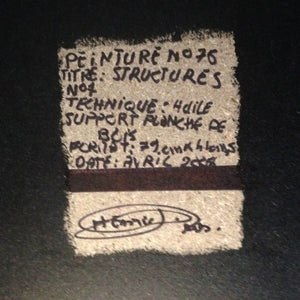 PEINTURE NO 76
TITRE: STRUCTURES
NO1
TECHNIQUE: HUILE
SUPPORT PLANCHE DE
BOIS
DATE: AVRIL 2008